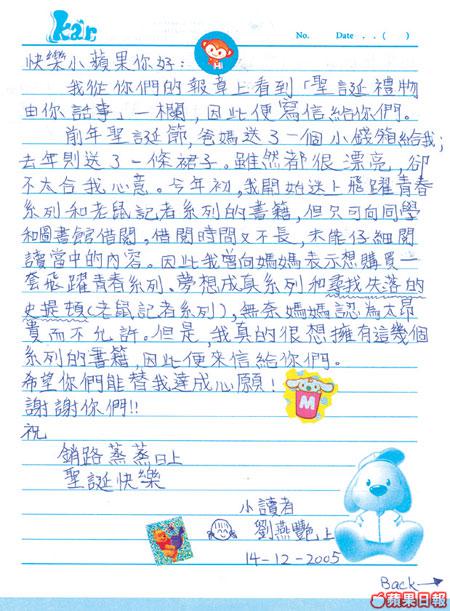 kar
No. Date . . ( )
快樂小蘋果你好：
我從你們的報章上看到「聖誕禮物
由你話事」一欄，因此便寫信給你們。
前年聖誕節，爸媽送了一個小錢箱給我；
去年則送了一條裙子。雖然都很漂亮，卻
不太合我心意。今年初，我開始迷上飛躍青春
系列和老鼠記者系列的書籍，但只可向同學
和圖書館借閱，借閱時間又不長，未能仔細閱
讀當中的內容。因此我曾向媽媽表示想購買一
套飛躍青春系列、夢想成真系列和尋找失落的
史提頓(老鼠記者系列)，無奈媽媽認為太昂
貴而不允許。但是，我真的很想擁有這幾個
系列的書籍，因此便來信給你們。
希望你們能替我達成心願！
謝謝你們!!
M
祝
銷路蒸蒸日上
聖誕快樂
小讀者
劉燕艷上
14-12-2005
Back→
蘋果日報